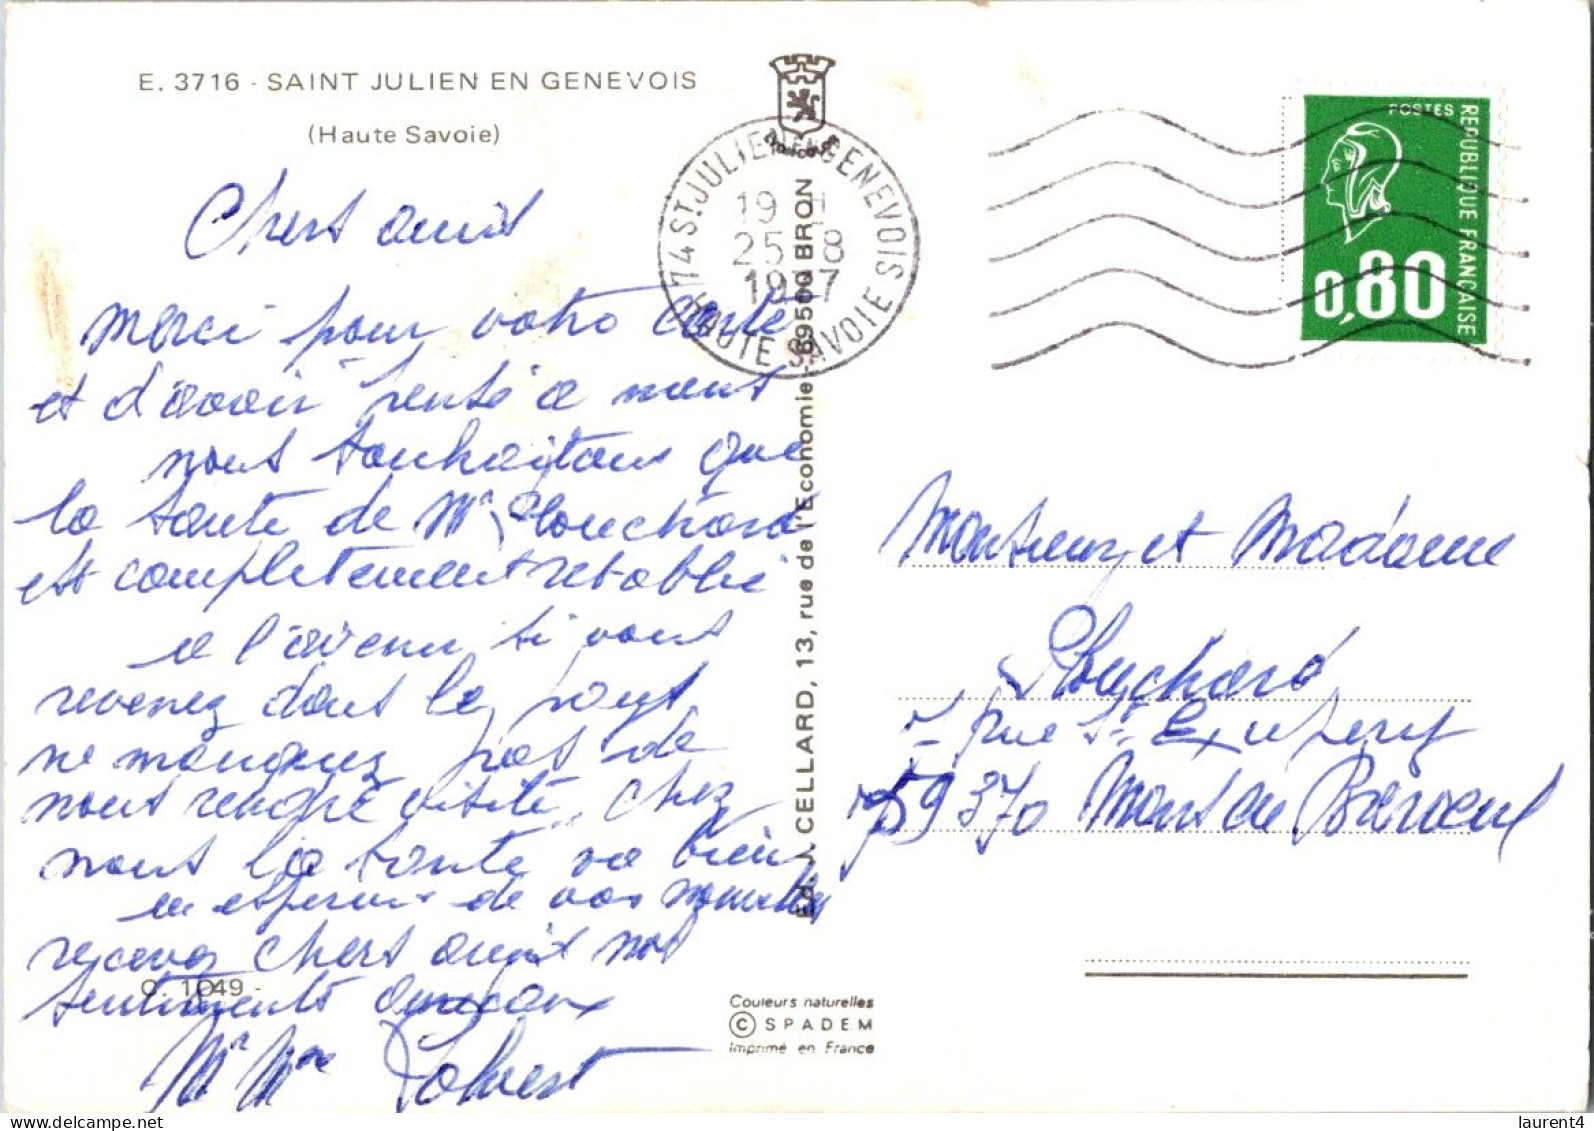 E. 3716 - SAINT JULIEN EN GENEVOIS
(Haute Savoie)
Chers amis
merci pour votre carte
et d'avoir pensé a nous
nous souhaitons que
la santé de Mr Plouchard
est completement retablie
a l'avenir si vous
revenez dans le pays
ne manquez pas de
nous rendre visite, chez
nous la santé va bien
en esperant de vos nouvelles
recevez chers amis nos
sentiments amicaux
Mr Mme
C. 1049 -
74 ST JULIEN EN GENEVOIS
19 H
25 - 8
1977
HAUTE SAVOIE
Ed. J. CELLARD, 13, rue de l'Economie - 69500 BRON
Couleurs naturelles
© SPADEM
Imprimé en France
POSTES
REPUBLIQUE FRANCAISE
0,80
Monsieur et Madame
Plouchard
rue St Exupery
59370 Mons en Baroeul
laurent4